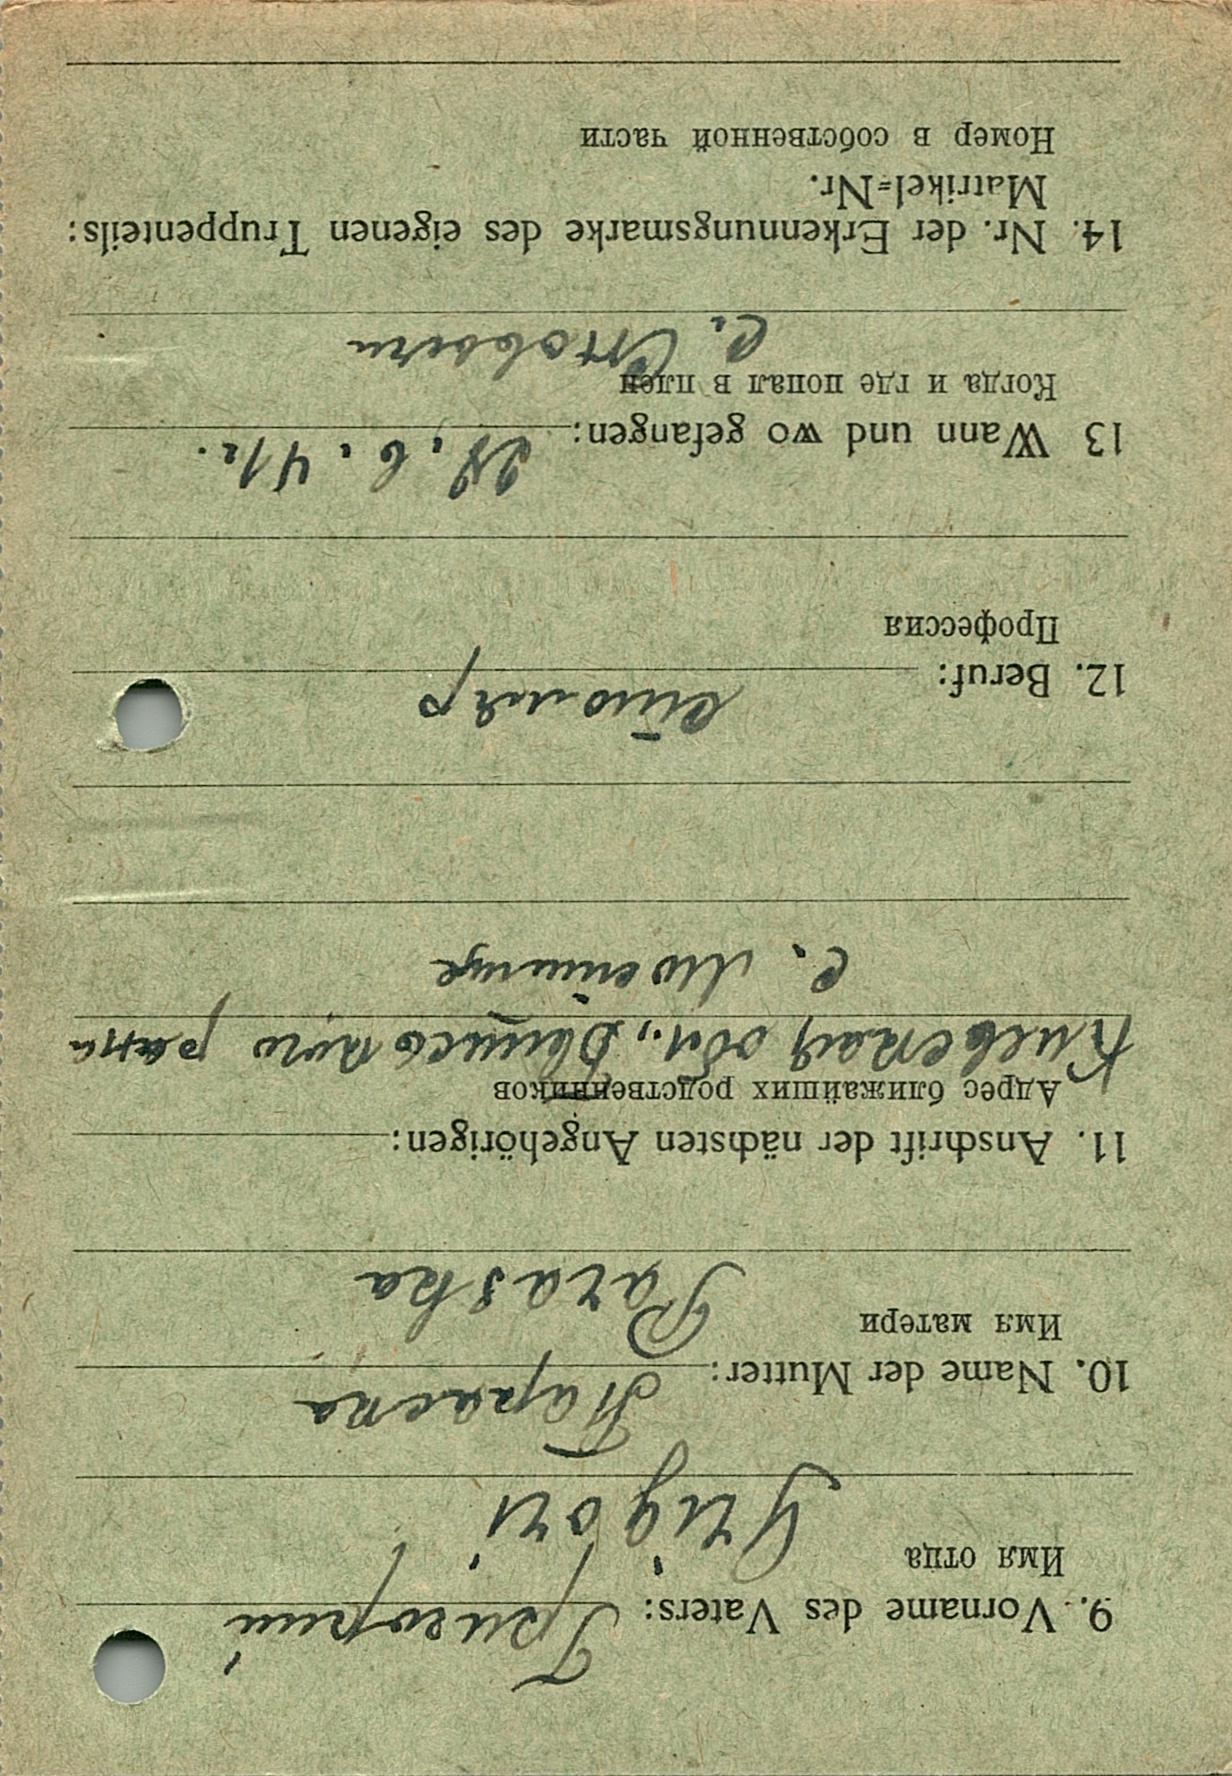 9. Vorname des Vaters: Григорий
Имя отца
Grigori
Параска
10. Name der Mutter:
Имя матери
Paraska
11. Anschrift der nächsten Angehörigen:
Адрес ближайших родственников
Киевская обл., района
с.
12. Beruf: столяр
Профессия
13 Wann und wo gefangen: 28. 6. 41г.
Когда и где попал в плен
с.
14. Nr. der Erkennungsmarke des eigenen Truppenteils:
Matrikel=Nr.
Номер в собственной части